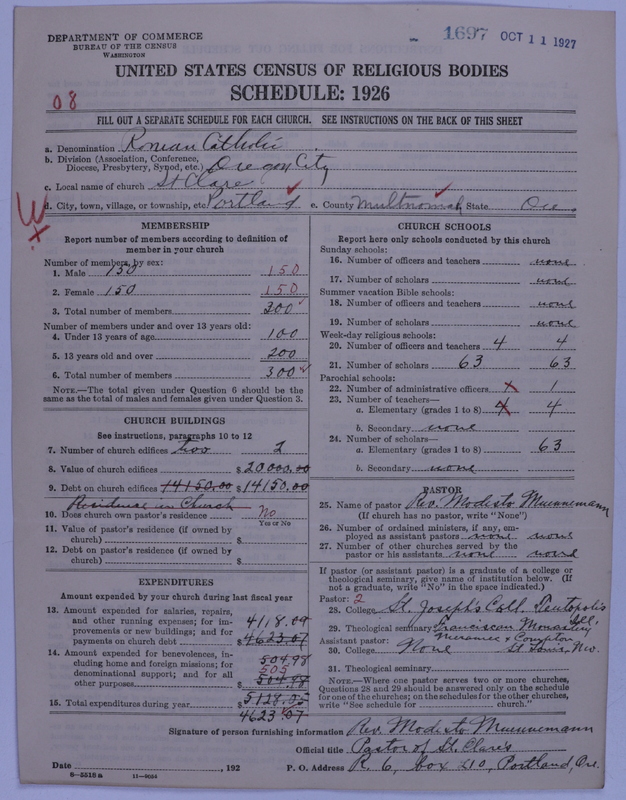 DEPARTMENT OF COMMERCE
BUREAU OF THE CENSUS
WASHINGTON
1697 OCT 11 1927
UNITED STATES CENSUS OF RELIGIOUS BODIES
SCHEDULE: 1926
08
FILL OUT A SEPARATE SCHEDULE FOR EACH CHURCH. SEE INSTRUCTIONS ON THE BACK OF THIS SHEET
a. Denomination Roman Catholic
b. Division (Association, Conference, Diocese, Presbytery, Synod, etc.) Oregon City
c. Local name of church St Clare
d. City, town, village, or township, etc. Portland e. County Multnomah State Ore.
MEMBERSHIP
Report number of members according to definition of
member in your church
Number of members by sex:
1. Male 150 150
2. Female 150 150
3. Total number of members 300
Number of members under and over 13 years old:
4. Under 13 years of age 100
5. 13 years old and over 200
6. Total number of members 300
NOTE.—The total given under Question 6 should be the
same as the total of males and females given under Question 3.
CHURCH BUILDINGS
See instructions, paragraphs 10 to 12
7. Number of church edifices two 2
8. Value of church edifices $20000.00
9. Debt on church edifices 14150.00 $14150.00
Residence in Church
10. Does church own pastor's residence? No
Yes or No
11. Value of pastor's residence (if owned by
church) $
12. Debt on pastor's residence (if owned by
church) $
EXPENDITURES
Amount expended by your church during last fiscal year
13. Amount expended for salaries, repairs,
and other running expenses; for im-
provements or new buildings; and for
payments on church debt 4118.09
$4623.07
14. Amount expended for benevolences, in-
cluding home and foreign missions; for
denominational support; and for all
other purposes 504.98
505
504.98
15. Total expenditures during year $5128.05
4623.07
CHURCH SCHOOLS
Report here only schools conducted by this church
Sunday schools:
16. Number of officers and teachers none
17. Number of scholars none
Summer vacation Bible schools:
18. Number of officers and teachers none
19. Number of scholars none
Week-day religious schools:
20. Number of officers and teachers 4 4
21. Number of scholars 63 63
Parochial schools:
22. Number of administrative officers 1
23. Number of teachers—
a. Elementary (grades 1 to 8) 4 4
b. Secondary none
24. Number of scholars—
a. Elementary (grades 1 to 8) 63
b. Secondary none
PASTOR
25. Name of pastor Rev. Modesto Muennemann
(If church has no pastor, write "None")
26. Number of ordained ministers, if any, em-
ployed as assistant pastors none none
27. Number of other churches served by the
pastor or his assistants none none
If pastor (or assistant pastor) is a graduate of a college or
theological seminary, give name of institution below. (If
not a graduate, write "No" in the space indicated.)
Pastor: 2
28. College St. Joseph's Coll. Teutopolis
Ill.
29. Theological seminary Franciscan Monastery
Assistant pastor: Meramec & Compton
30. College None St Louis, Mo.
31. Theological seminary
NOTE.—Where one pastor serves two or more churches,
Questions 28 and 29 should be answered only on the schedule
for one of the churches; on the schedules for the other churches,
write "See schedule for church."
Signature of person furnishing information Rev. Modesto Muennemann
Official title Pastor of St. Clares
Date , 192 P. O. Address R. 6, box 210, Portland, Ore.
8-5518a 11-9054